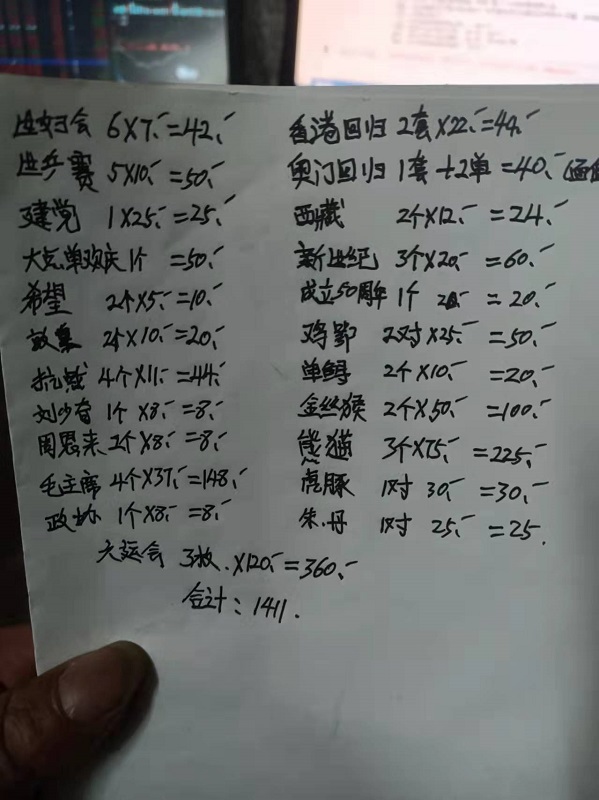 世妇会 6X7.-=42.-
世乒赛 5X10.-=50.-
建党 1X25.-=25.-
大点单欢庆1个 =50.-
希望 2个X5.-=10.-
敦煌 2个X10.-=20.-
抗战 4个X11.-=44.-
刘少奇 1个X8.-=8.-
周恩来 1个X8.-=8.-
毛主席 4个X37.-=148.-
政协 1个X8.-=8.-
香港回归 2套X22.-=44.-
澳门回归 1套+2单 =40.-
西藏 2个X12.- =24.-
新世纪 3个X20.- =60.-
成立50周年 1个 20.- =20.-
鸡 2对X25.- =50.-
单鲟 2个X10.- =20.-
金丝猴 2个X50.- =100.-
熊猫 3个X75.- =225.-
虎豚 1对 30.- =30.-
朱.丹 1对 25.- =25.
六运会 3枚.X120.-=360.-
合计:1411.